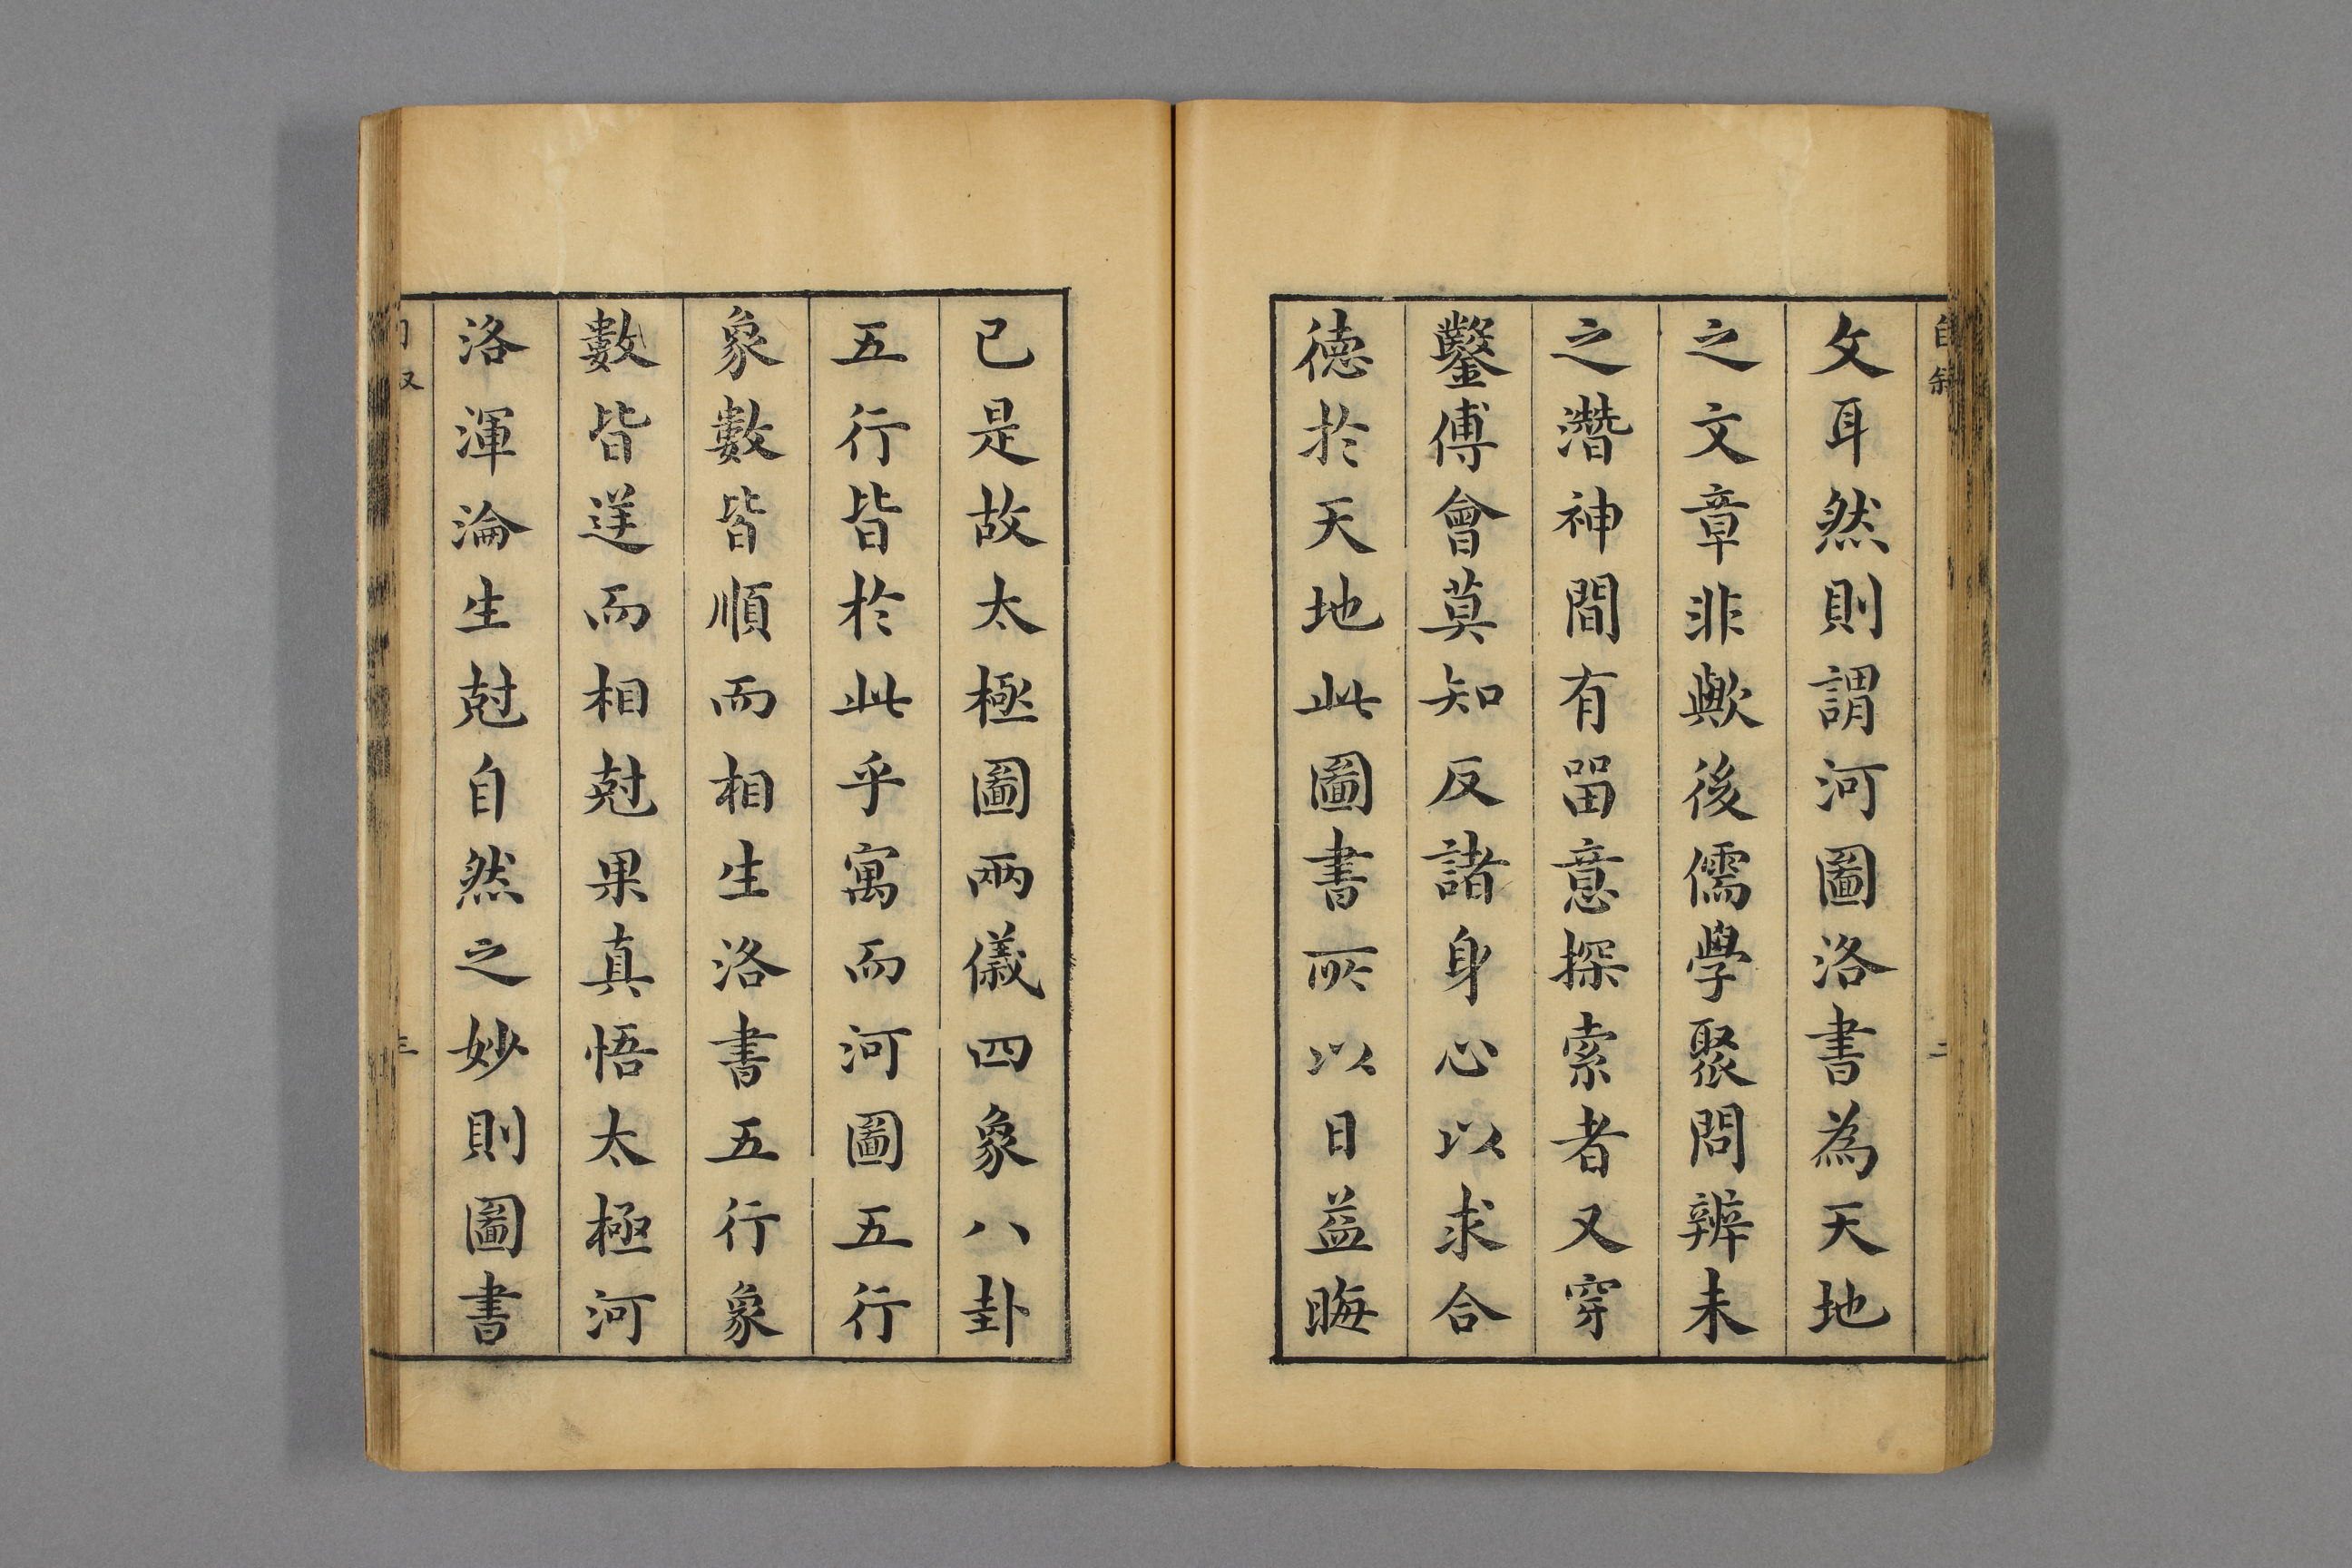 自敘
二
文耳然則謂河圖洛書為天地
之文章非歟後儒學聚問辨未
之潛神間有留意探索者又穿
鑿傅會莫知反諸身心以求合
德於天地此圖書所以日益晦
已是故太極圖兩儀四象八卦
五行皆於此乎寓而河圖五行
象數皆順而相生洛書五行象
數皆逆而相尅果真悟太極河
洛渾淪生尅自然之妙則圖書
三